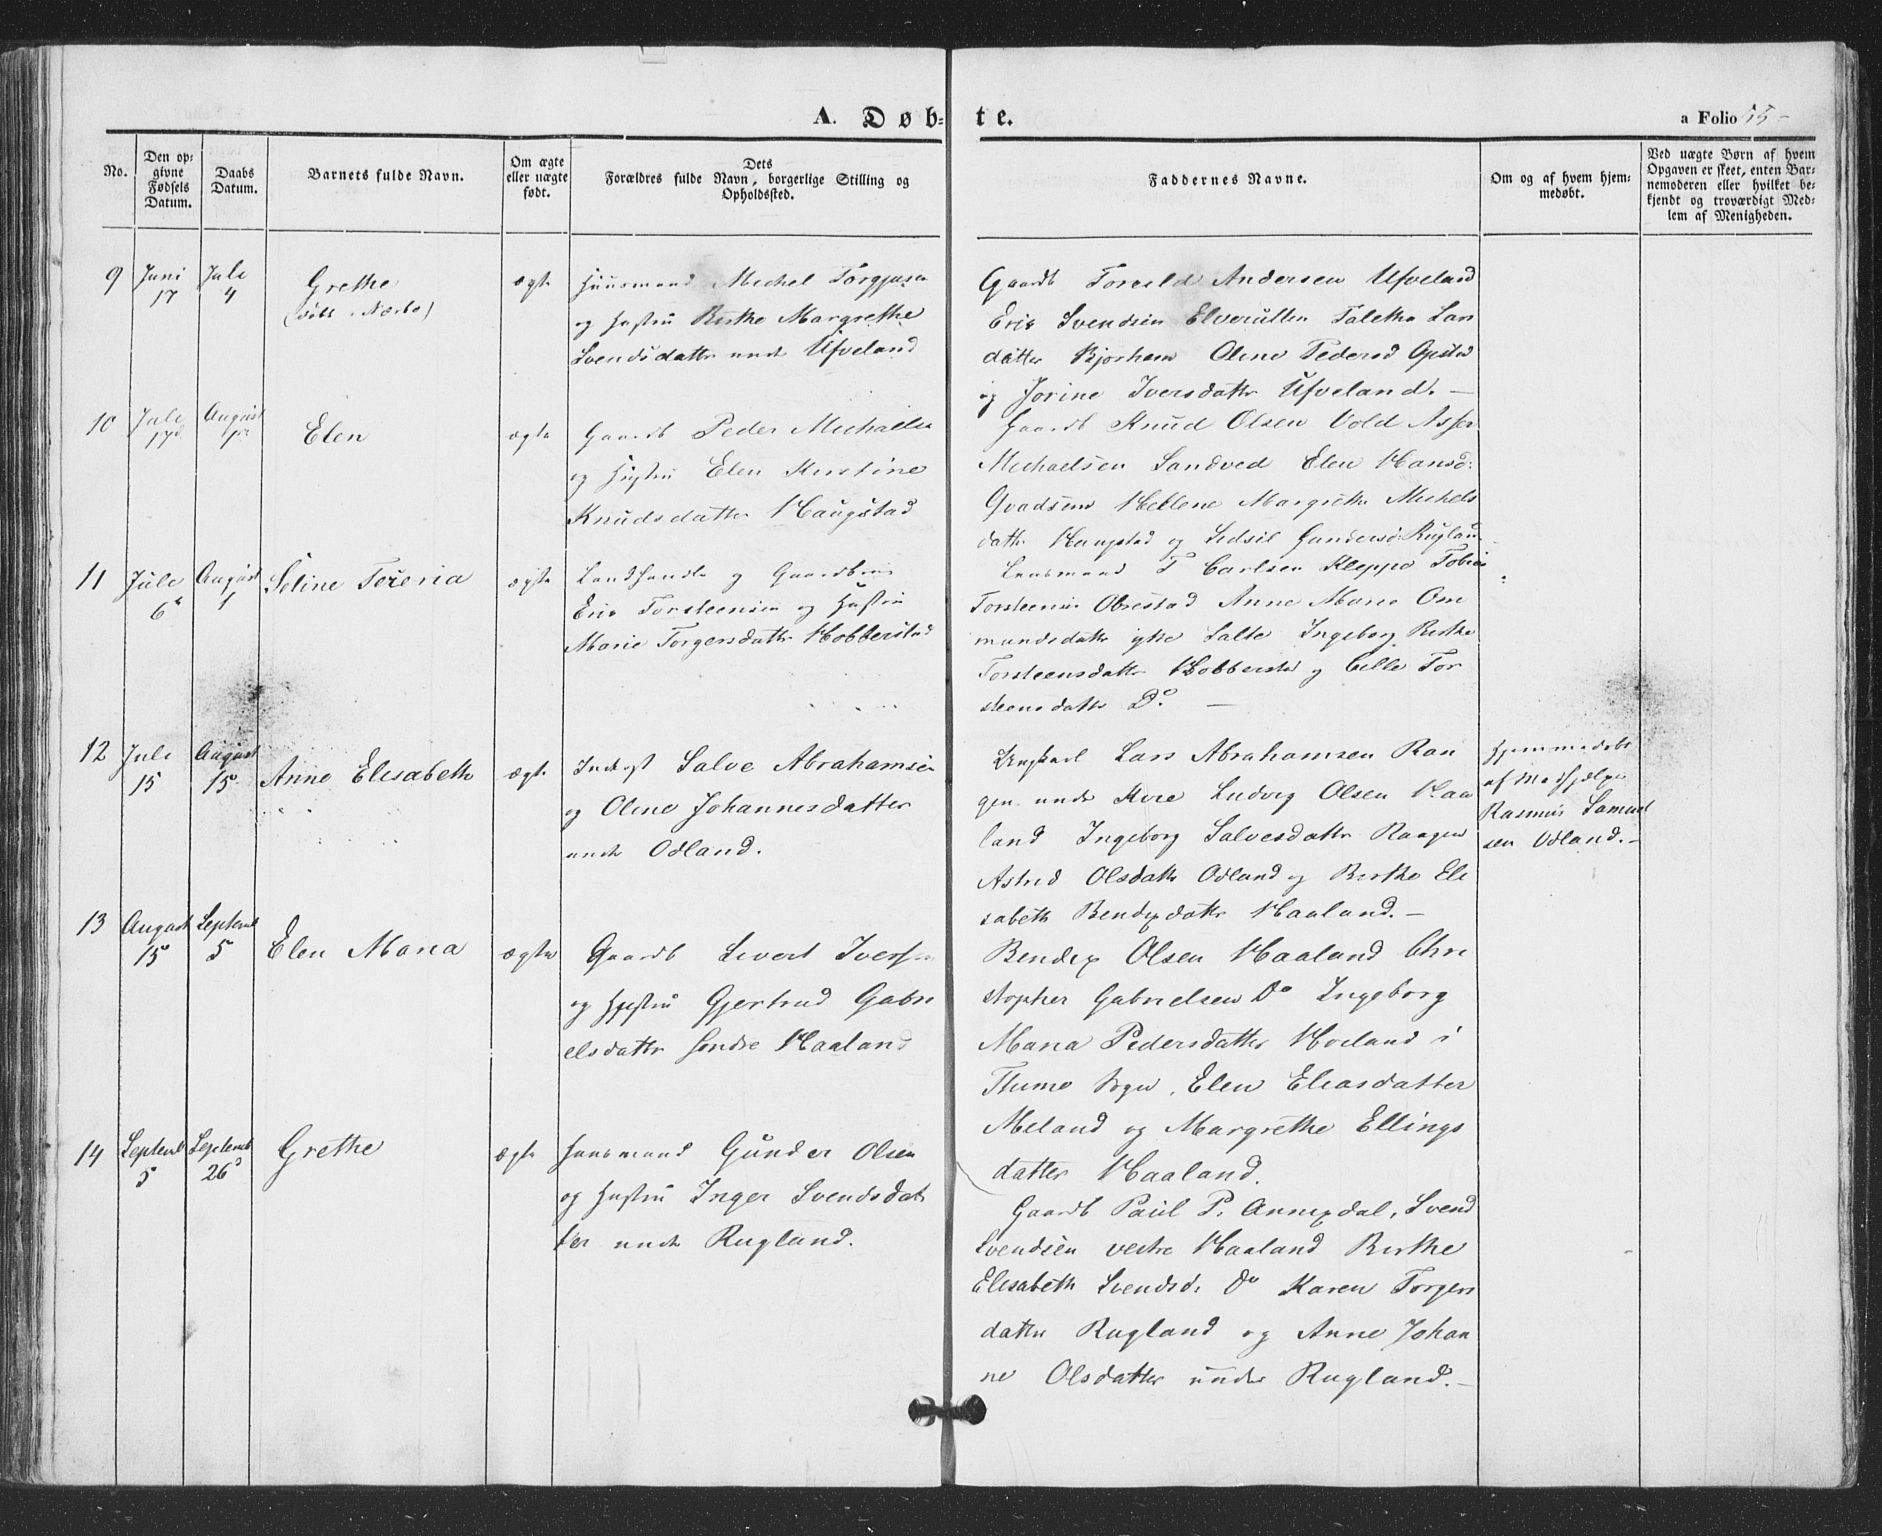 A. Døb-
te.
a Folio 55-
No.
Den op-
givne
Fødsels
Datum.
Daabs
Datum.
Barnets fulde Navn.
Om ægte
eller uægte
født.
Dets
Forældres fulde Navn, borgerlige Stilling og
Opholdssted.
Faddernes Navne.
Om og af hvem hjem-
medøbt.
Ved uægte Børn af hvem
Opgaven er skeet, enten Bar-
nemoderen eller hvilket be-
kjendt og troværdigt Med-
lem af Menigheden.
9
Juni
17
Juli
4
Grethe
(døbt i Nærbø)
ægte
Huusmand Michel Torgjusen
og Hustru Berthe Margrethe
Svendsdatter under Ufveland
Gaardb Andersen Ufveland
Eric Svendsen Taletha Lars
datter Bjorhem Oline Pedersd Opstad
og Jorine Iversdatter Ufveland. -
10
Juli
17d
August
1
Elen
ægte
Gaardb Peder Michaelsen
og Hustru Elen Kirstine
Knudsdatter Haugstad
Gaardb Knud Olsen Vold Asser
Michaelsen Sandved Elen Hansd:
Qvadsem Hellene Margrethe Michels
datter Haugstad og Sidsil Gundersd: Rugland
11
Juli
6
August
1
Soline Tereria
ægte
Landhandler og Gaardbruger
Eric Torsteensen og Hustru
Marie Torgersdatter Hobberstad
Lensmand T Carlsen Kleppe Tobias
Torsteensen Obrestad Anne Marie Om
mundsdatter Salte Ingeborg Berthe
Torsteensdatter Hobberstad og Cille Tor
steensdatter Do. -
12
Juli
15
August
15
Anne Elisabeth
ægte
Inderst Salve Abrahamsen
og Oline Johannesdatter
under Odland.
Ungkarl Lars Abrahamsen Ran
gen under Ludvig Olsen Haa
land Ingeborg Salvesdatter Raagen
Astrid Olsdatter Odland og Berthe Eli
sabeth Bendixdatter Haaland. -
Hjemmedøbt
af Medhjelper
Rasmus Samuel
sen Odland. -
13
August
15
Septembr
5
Elen Maria
ægte
Gaardb Sivert Iversen
og Hustru Gjertrud Gabri
elsdatter søndre Haaland
Bendix Olsen Haaland Chri
stopher Gabrielsen Do Ingeborg
Maria Pedersdatter Hoiland i
Thime Sogn, Elen Eliasdatter
Meland og Margrethe Ellings
datter Haaland.
14
Septembr
5
Septembr
26d
Grethe
ægte
Huusmand Gunder Olsen
og Hustru Inger Svendsdat
ter under Rugland.
Gaardb Paul P. Annexdal, Svend
Svendsen vestre Haaland Berthe
Elisabeth Svendsd. Do Karen Torgers
datter Rugland og Anne Johan
ne Olsdatter under Rugland. -